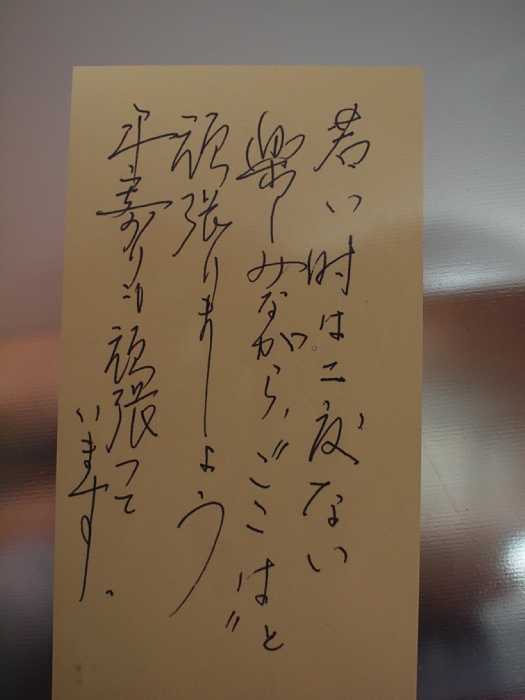 若い時は二度ない
楽しみながら、〝ここは〟と
頑張りましょう
年寄りも頑張って
います。